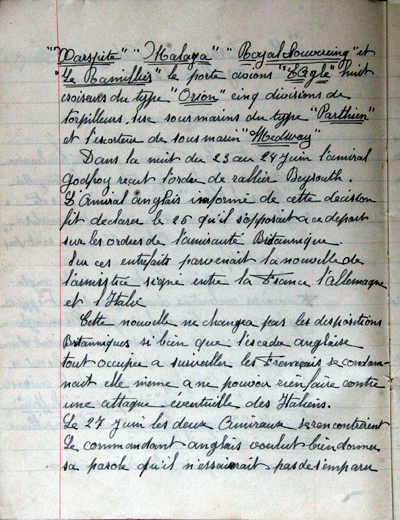 "Warspite" "Malaga" "Royal Souvereing" et
"Le Ramillies" le porte avions "Eagle" huit
croiseurs du type "Orion" cinq divisions de
torpilleurs, sous marins du type "Parthien"
et l'escorteur de sous marin "Medway"
Dans la nuit du 23 au 24 Juin l'amiral
Godfroy reçut l'ordre de rallier Beyrouth.
L'Amiral anglais informé de cette décision
fit declarer le 26 qu'il s'opposait a ce depart
sur les ordres de l'amirauté Britannique.
Sur ces entrefaits parvenait la nouvelle de
l'armistice signe entre la France l'Allemagne
et l'Italie
Cette nouvelle ne changea pas les dispositions
Britanniques si bien que l'escadre anglaise
tout occupee a surveiller les Français se condam-
nait elle meme a ne pouvoir rien faire contre
une attaque éventuelle des Italiens.
Le 27 Juin les deux Amiraux se rencontrèrent
Le commandant anglais voulut bien donner
sa parole qu'il n'essaierait pas de s'emparer